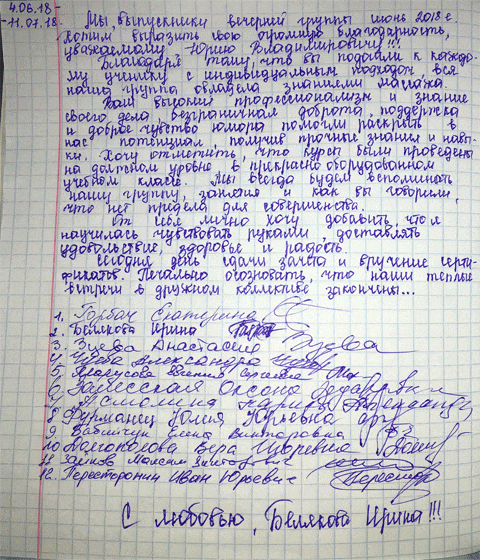 4.06.18-
-11.07.18.
Мы, выпускники вечерней группы июнь 2018 г.
хотим выразить свою огромную благодарность,
уважаемому Юрию Владимировичу!!!
Благодаря тому, что вы подошли к каждо-
му ученику с индивидуальным подходом, вся
наша группа овладела знаниями массажа.
Ваш высокий профессионализм и знание
своего дела, безграничная доброта, поддержка
и доброе чувство юмора помогли раскрыть в
нас потенциал, получив прочные знания и навы-
ки. Хочу отметить, что курсы были проведены
на должном уровне в прекрасно оборудованном
учебном классе. Мы всегда будем вспоминать
нашу группу, занятия и как вы говорили,
что нет предела для совершенства.
От себя лично хочу добавить, что я
научилась чувствовать руками, доставлять
удовольствие, здоровье и радость.
Сегодня день сдачи зачёта и вручение серти-
фикатов. Печально осознавать, что наши теплые
встречи в дружном коллективе закончены...
1. Горбач Екатерина
2. Белякова Ирина
3. Зуева Анастасия Зуева
4. Александра
5. Евгения Сергеевна
6. Оксана Эдуардовна
7.
8. Фурманец Юлия Юрьевна
9. Елена Викторовна
10. Вера Игоревна
11. Максим
12. Пересторонин Иван Юрьевич
С любовью, Белякова Ирина!!!